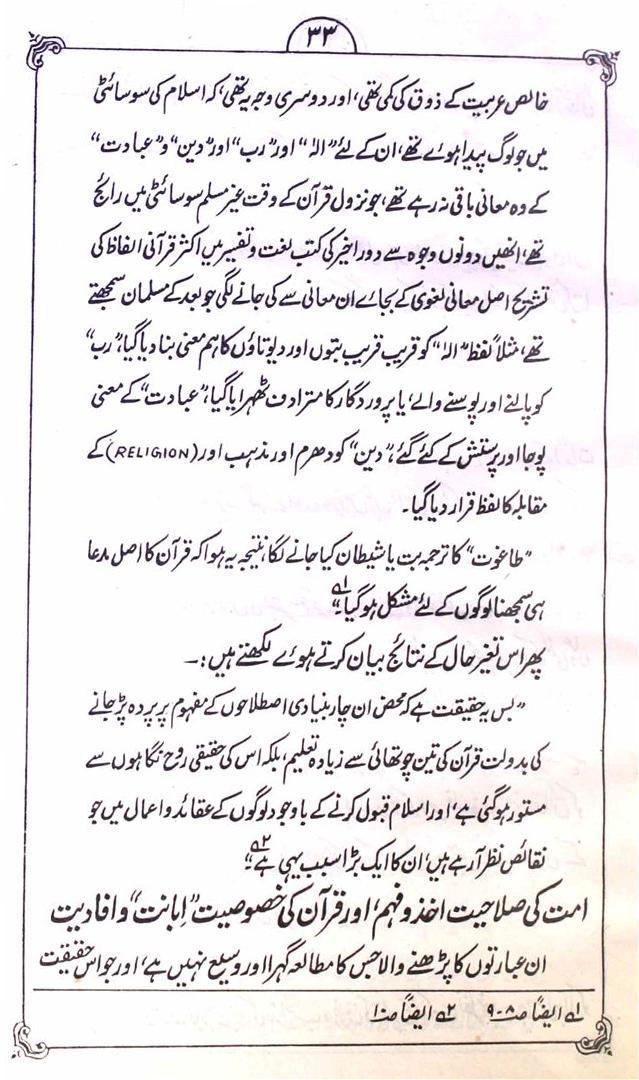 ۳۳
خالص عربیت کے ذوق کی کمی تھی، اور دوسری وجہ یہ تھی، کہ اسلام کی سوسائٹی
میں جو لوگ پیدا ہوئے تھے، ان کے لئے "الٰہ" اور "رب" اور "دین" و "عبادت"
کے وہ معانی باقی نہ رہے تھے، جو نزول قرآن کے وقت غیر مسلم سوسائٹی میں رائج
تھے، انھیں دونوں وجوہ سے دور اخیر کی کتب لغت و تفسیر میں اکثر قرآنی الفاظ کی
تشریح اصل معانی لغوی کے بجائے ان معانی سے کی جانے لگی جو بعد کے مسلمان سمجھتے
تھے، مثلاً لفظ "الٰہ" کو قریب قریب بتوں اور دیوتاؤں کا ہم معنی بنا دیا گیا، "رب"
کو پالنے اور پوسنے والے، یا پروردگار کا مترادف ٹھہرایا گیا، "عبادت" کے معنی
پوجا اور پرستش کے کئے گئے، "دین" کو دھرم اور مذہب اور (RELIGION) کے
مقابلہ کا لفظ قرار دیا گیا۔
"طاغوت" کا ترجمہ بت یا شیطان کیا جانے لگا، نتیجہ یہ ہوا کہ قرآن کا اصل مدعا
ہی سمجھنا لوگوں کے لئے مشکل ہو گیا۔" ۱ے
پھر اس تغیر حال کے نتائج بیان کرتے ہوئے لکھتے ہیں :۔
"بس یہ حقیقت ہے کہ محض ان چار بنیادی اصطلاحوں کے مفہوم پر پردہ پڑ جانے
کی بدولت قرآن کی تین چوتھائی سے زیادہ تعلیم، بلکہ اس کی حقیقی روح نگاہوں سے
مستور ہو گئی ہے، اور اسلام قبول کرنے کے باوجود لوگوں کے عقائد و اعمال میں جو
نقائص نظر آ رہے ہیں، ان کا ایک بڑا سبب یہی ہے۔" ۲ے
امت کی صلاحیت اخذ و فہم، اور قرآن کی خصوصیت "اِبانت" و افادیت
ان عبارتوں کا پڑھنے والا جس کا مطالعہ گہرا اور وسیع نہیں ہے، اور جو اس حقیقت
۱ے ایضاً صـ۸-۹ ۲ے ایضاً صـ۱۰